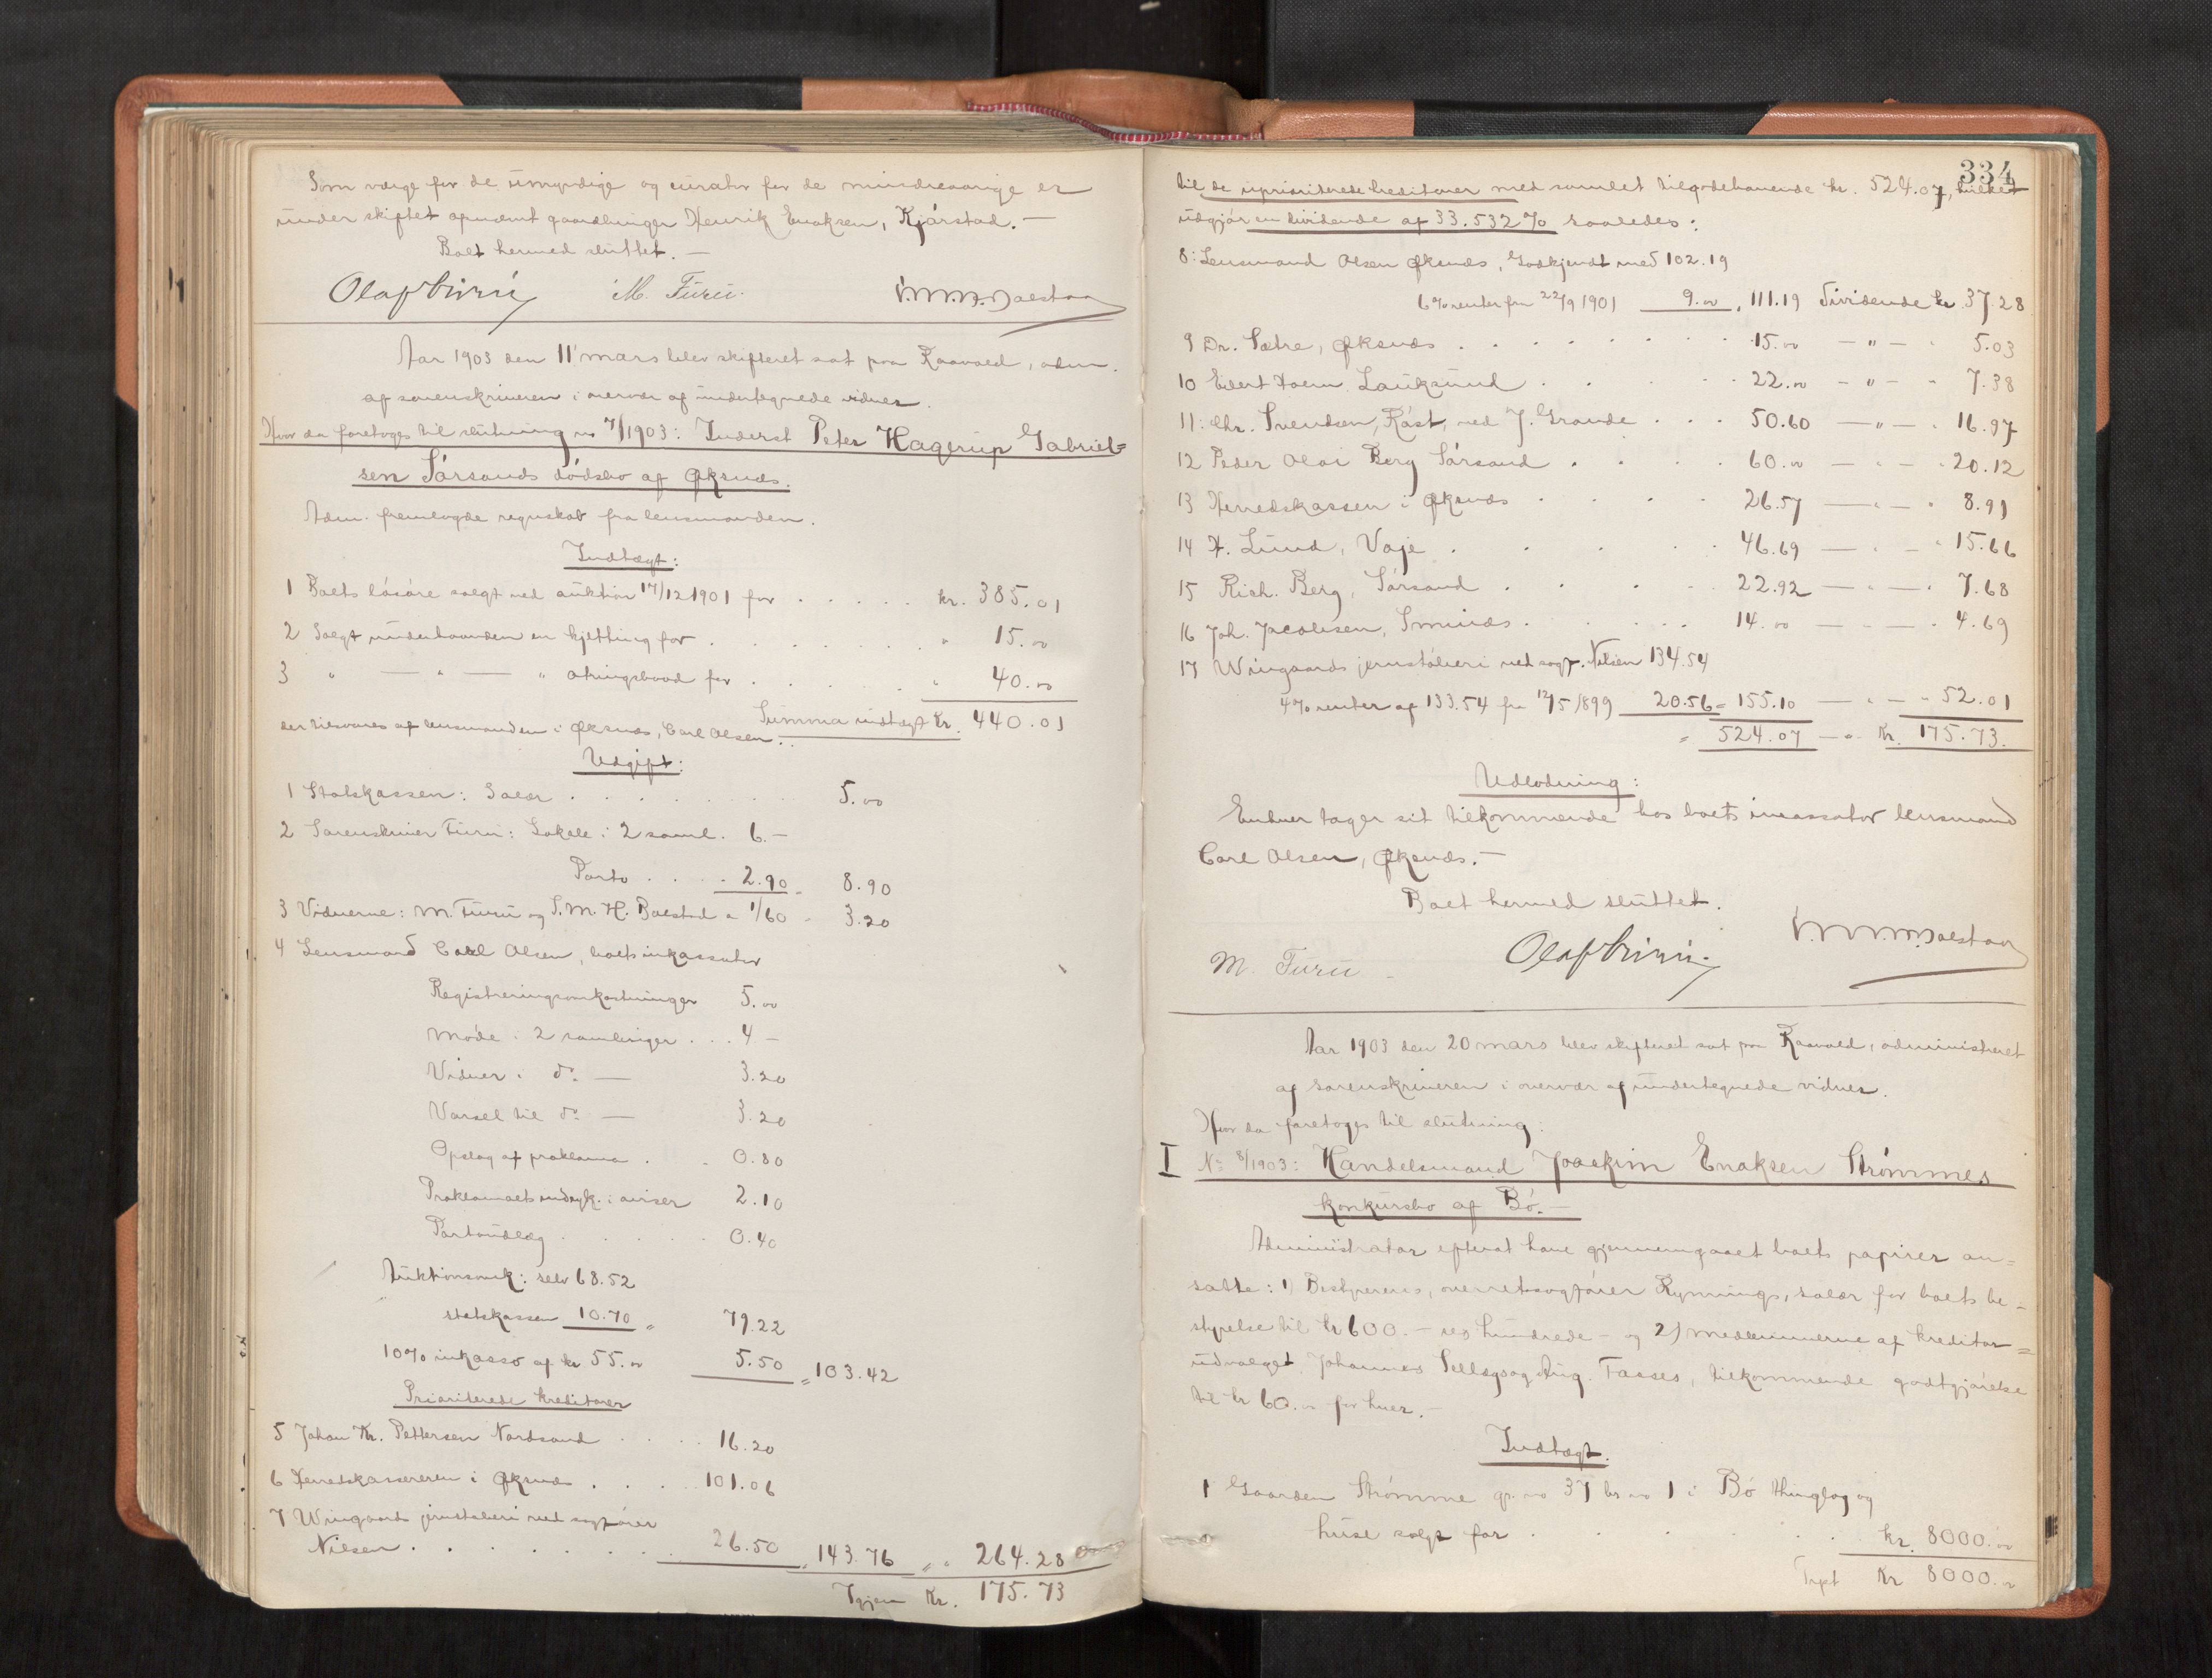 Som værge for de umyndige og curator for de mindreaarige er
under skiftet opnævnt gaardbruger Henrik Enoksen, Kjørstad. —
Boet hermed sluttet. —
M. Furu.
Aar 1903 den 11 mars blev skifteret sat paa Raavold, adm.
af sorenskriveren i overvær af undertegnede vidner.
Hvor da foretoges til slutning no 7/1903: Inderst Peter Hagerup Gabriel=
sen Sørsands dødsbo af Øksnæs.
Adm. fremlagde regnskab fra lensmanden.
Indtægt:
1 Boets løsøre solgt ved auktion 17/12 1901 for . . . . . kr. 385.01
2 Solgt underhaanden en kjetting for . . . . . . . " 15.00
3 " — " — " otringsbaad for . . . . . " 40.00
der tilsvares af lensmanden i Øksnæs, Carl Olsen. Summa indtægt Kr. 440.01
Udgift:
1 Statskassen: Salær . . . . . . . 5.00
2 Sorenskriver Furu: Lokale i 2 saml. 6.—
Porto . . . 2.90 = 8.90
3 Vidnerne: M. Furu og S. M. H. Balstad a 1/60 = 3.20
4 Lensmand Carl Olsen, boets inkassator
Registreringsomkostninger 5.00
Møde i 2 samlinger . . . 4 —
Vidner i do — 3.20
Varsel til do — 3.20
Opslag af proklama . . 0.80
Proklamaets indryk. i aviser 2.10
Portoudlæg . . . . . 0.40
Auktionsomk: selv 68.52
statskassen 10.70 = 79.22
10% inkasso af kr 55.00 5.50 = 103.42
Prioriterede kreditorer
5 Johan Kr. Pettersen Nordsand . . . . 16.20
6 Herredskassereren i Øksnæs . . . . 101.06
7 Wingaards jernstøberi ved sagfører
Nilsen . . . . . . . 26.50 = 143.76 = " 264.28
Igjen Kr. 175.73
334
til de uprioriterede kreditorer med samlet tilgodehavende kr. 524.07, hvilket
udgjør en dividende af 33.532% saaledes:
8: Lensmand Olsen Øksnæs, Godkjendt med 102.19
6% renter fra 22/9 1901 9.00 = 111.19 Dividende kr 37.28
9 Dr. Sætre, Øksnæs . . . . . . . 15.00 — " — " 5.03
10 Edvert Lauksund . . . . . 22.00 — " — " 7.38
11: Chr. Svendsen, Røst, ved J. Grande . . . 50.60 — " — " 16.97
12 Peder Olai Berg Sørsand . . . . 60.00 — " — " 20.12
13 Herredskassen i Øksnæs . . . . 26.57 — " — " 8.91
14 H. Lund, Vaje . . . . . 46.69 — " — " 15.66
15 Rich. Berg, Sørsand . . . . 22.92 — " — " 7.68
16 Joh. Jacobsen, Smines . . . . . 14.00 — " — " 4.69
17 Wingaards jernstøberi ved sagf. Nilsen 134.54
4% renter af 133.54 fra 12/5 1899 20.56 = 155.10 — " — " 52.01
= 524.07 — " — Kr. 175.73.
Udlodning:
Enhver tager sit tilkommende hos boets incassator lensmand
Carl Olsen, Øksnæs. —
Boet hermed sluttet.
M. Furu
Aar 1903 den 20 mars blev skifteret sat paa Raavold, administreret
af sorenskriveren i overvær af undertegnede vidner.
Hvor da foretoges til slutning:
I No 8/1903: Handelsmand Joackim Enoksen Strømmes
konkursbo af Bø. —
Administrator efterat have gjennemgaaet boets papirer an=
satte: 1) Bestyrerens, overretssagfører Rynnings, salær for boets be=
styrelse til kr 600.— sex hundrede — og 2) medlemmerne af kreditor=
udvalget Johannes og Aug. tilkommende godtgjørelse
til kr 60.00 for hver. —
Indtægt.
1 Gaarden Strømme gr. no 37 br no 1 i Bø thinglag og
huse solgt for . . . . . . kr. 8000.00
Kr 8000.00